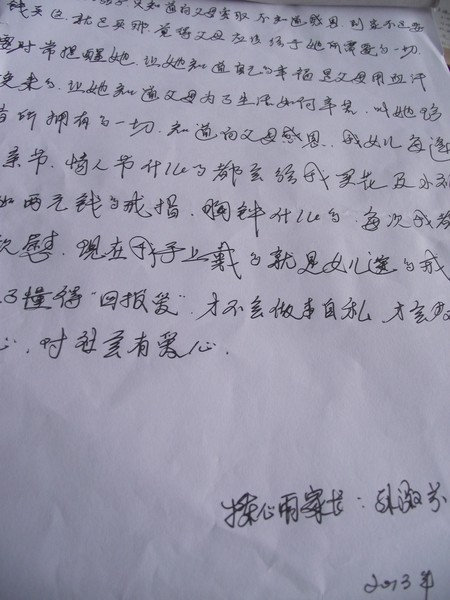 只知道向父母索取不知道感恩
就是买那，觉得父母应该给予她所需要的一切.
时常提醒她，让她知道自己的幸福是父母用血汗
换来的，让她知道父母为了生活如何辛苦，叫她珍
惜所拥有的一切，知道向父母感恩，我女儿每逢
亲节，情人节什么的都会给我买花及小礼
如两元钱的戒指，胸针什么的，每次我都
感，现在我手上戴的就是女儿送的戒
懂得“回报爱”，才不会做事自私，才会
心，对社会有爱心.
心雨家长：孙淑芬
2013年